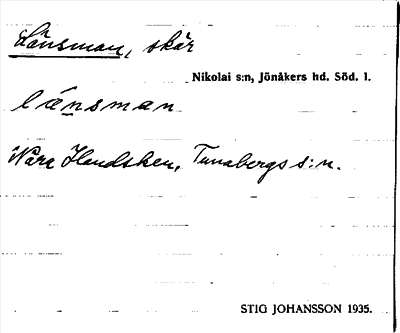 Länsman, skär
Nikolai s:n, Jönåkers hd. Söd. l.
länsman
Nära Handsken, Tunabergs s:n.
STIG JOHANSSON 1935.